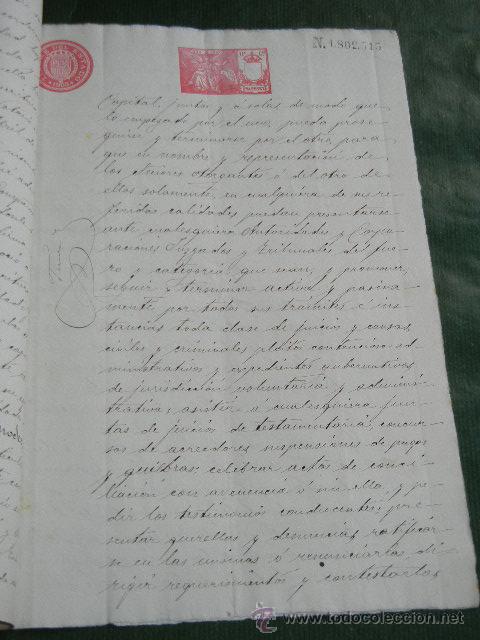 N. 1.802,515
Capital, juntos y á solas de modo que
lo empezado por el uno, pueda prose-
guirse y terminarse por el otro, para
que en nombre y representación de
los Señores Otorgantes ó del otro de
ellos solamente, en cualquiera de sus re-
feridas calidades puedan presentarse
ante cualesquiera Autoridades y Corpo-
raciones Juzgados y Tribunales del fue-
ro y categoría que sean, y promover,
seguir y terminar activa y pasiva-
mente por todos sus trámites é ins-
tancias toda clase de juicios y causas,
civiles y criminales pleitos contencioso ad-
ministrativos y expedientes gubernativos
de jurisdicción voluntaria y adminis-
trativa; asistir á cualesquiera jun-
tas de juicios de testamentaría, concur-
sos de acreedores suspensiones de pagos
y quiebras; celebrar actos de conci-
liación con avenencia ó sin ella, y pe-
dir los testimonios conducentes; pre-
sentar querellas y denuncias, ratificar-
se en las mismas ó renunciarlas, di-
rigir requerimientos y contestarlos,
todocoleccion.net